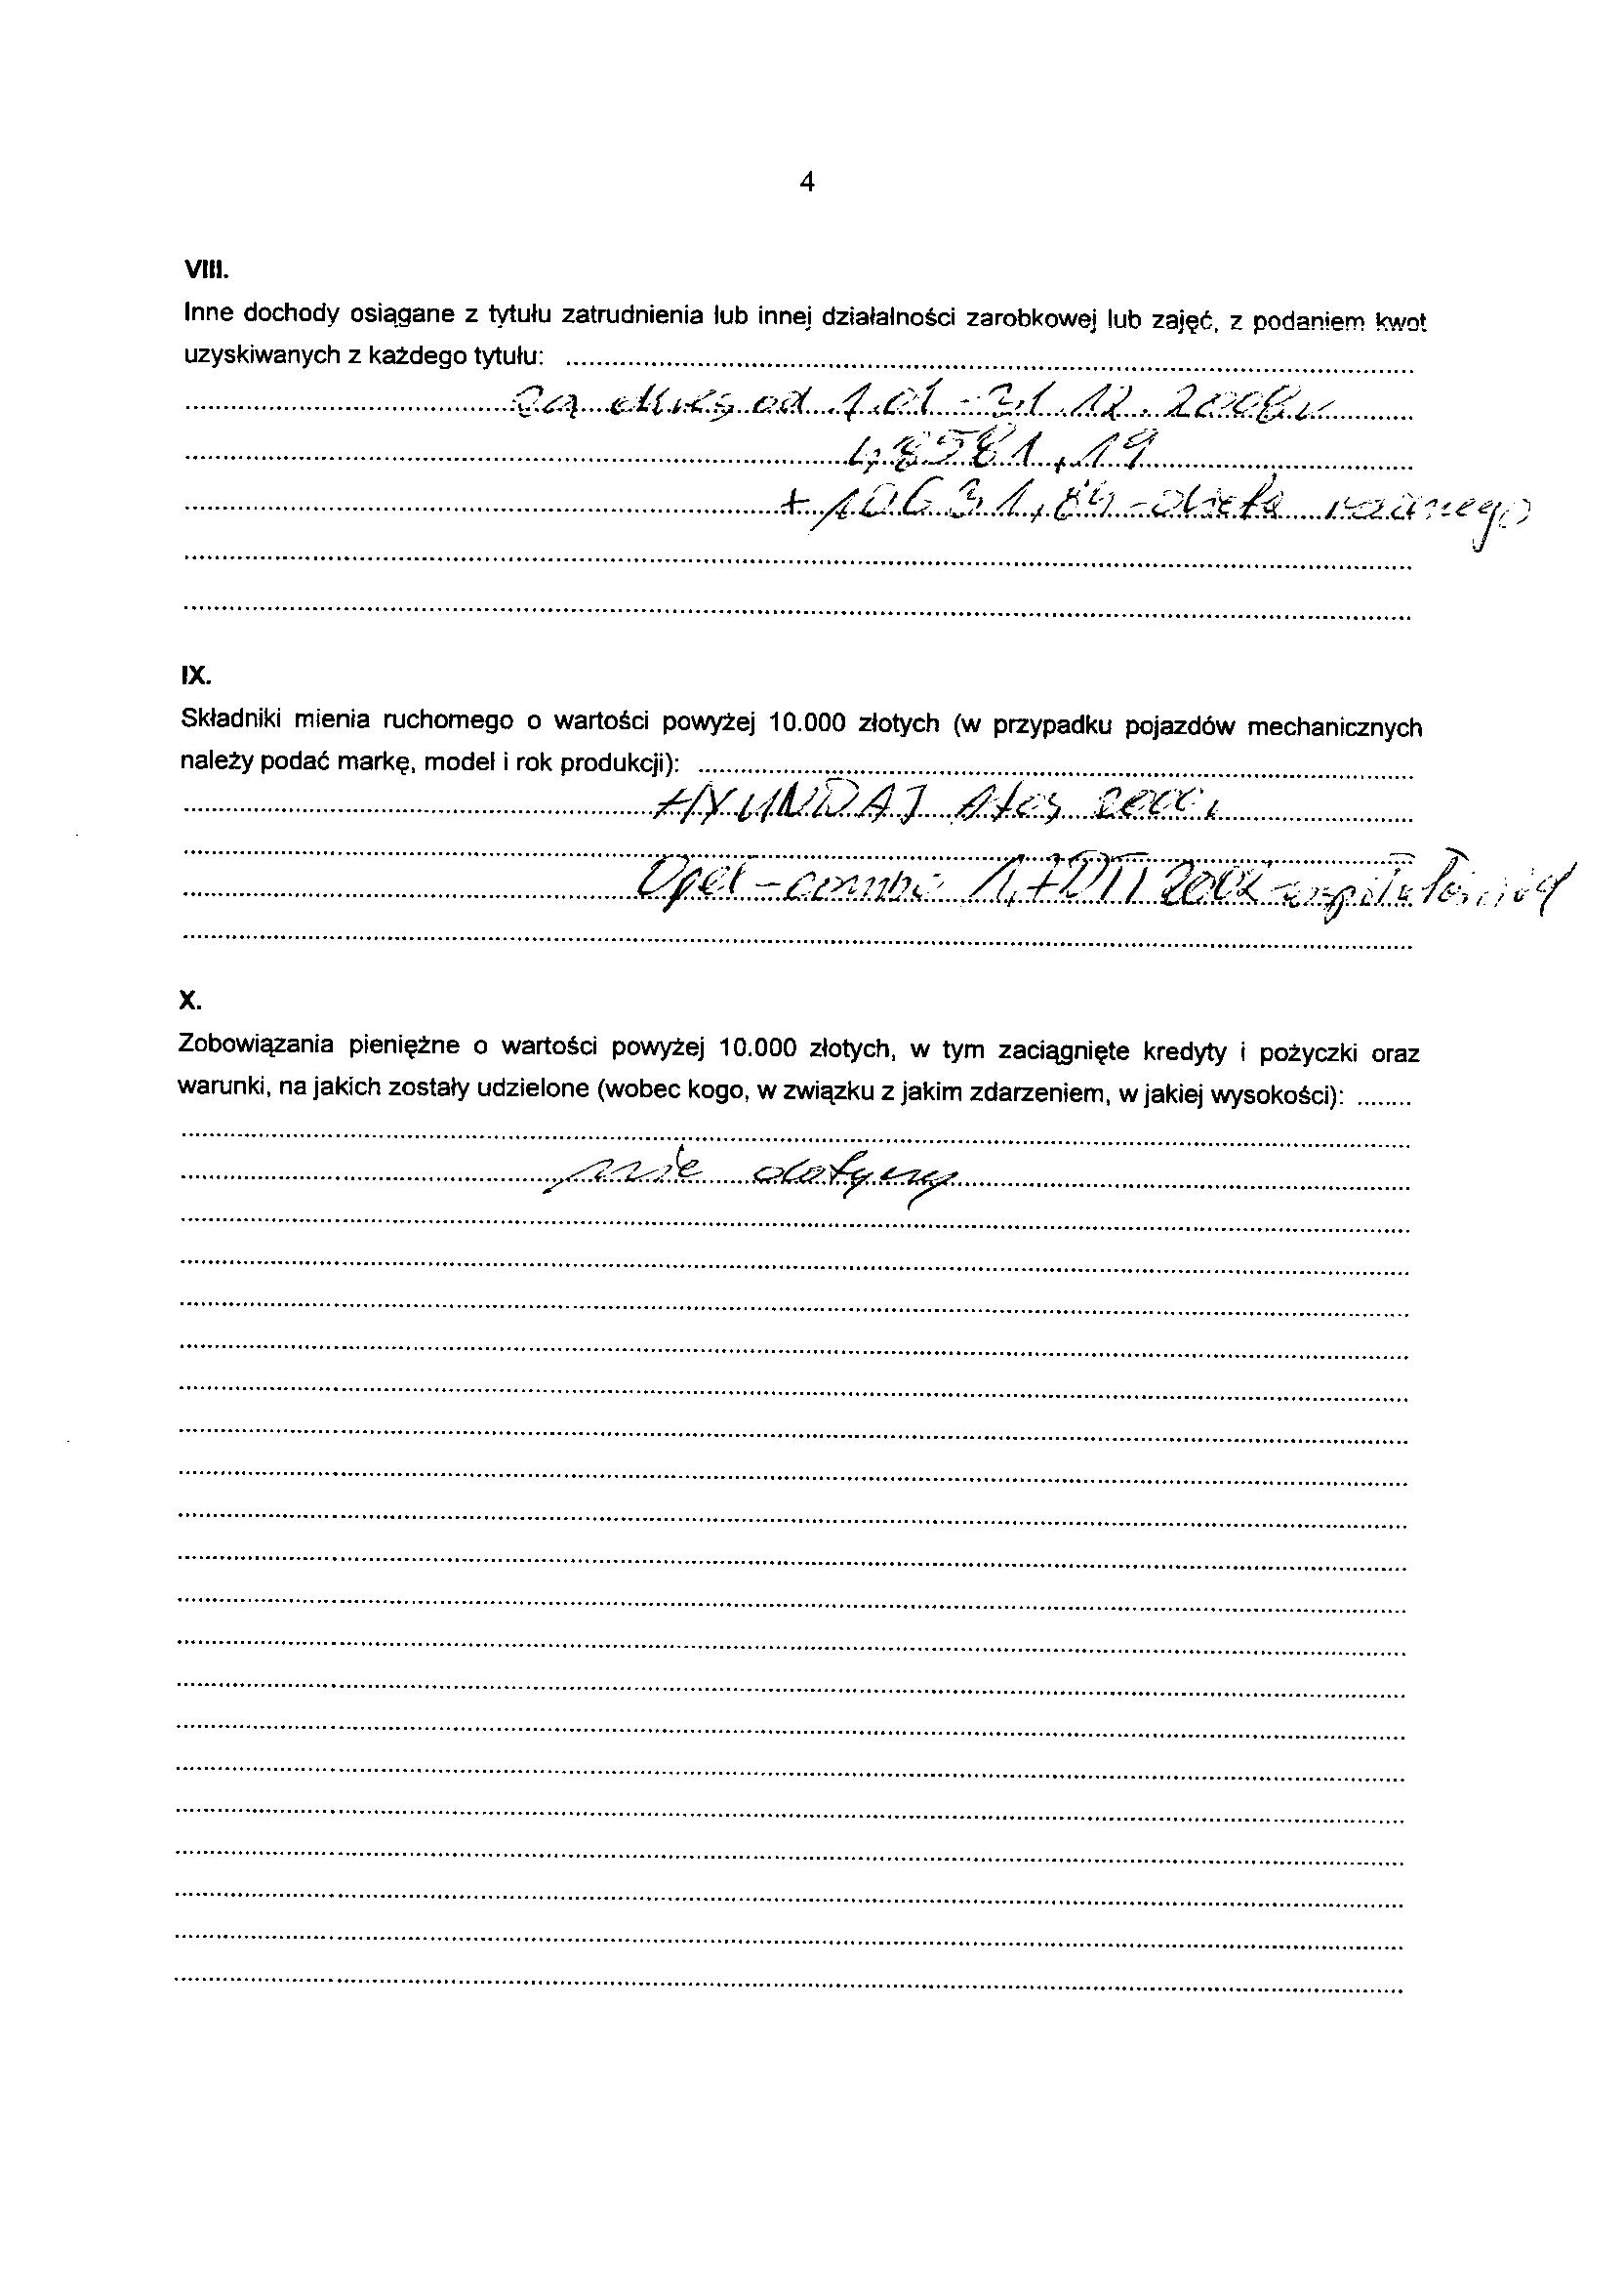 4
VIII.
Inne dochody osiągane z tytułu zatrudnienia lub innej działalności zarobkowej lub zajęć, z podaniem kwot
uzyskiwanych z każdego tytułu: ..........
za okres od 1.01 - 31.12.2008 r
48581,19
+ 10631,84 - dieta radnego
IX.
Składniki mienia ruchomego o wartości powyżej 10.000 złotych (w przypadku pojazdów mechanicznych
należy podać markę, model i rok produkcji): ..........
HYUNDAJ Atos
Opel - combi 1,7 DTI współwłasność
X.
Zobowiązania pieniężne o wartości powyżej 10.000 złotych, w tym zaciągnięte kredyty i pożyczki oraz
warunki, na jakich zostały udzielone (wobec kogo, w związku z jakim zdarzeniem, w jakiej wysokości): ........
nie dotyczy